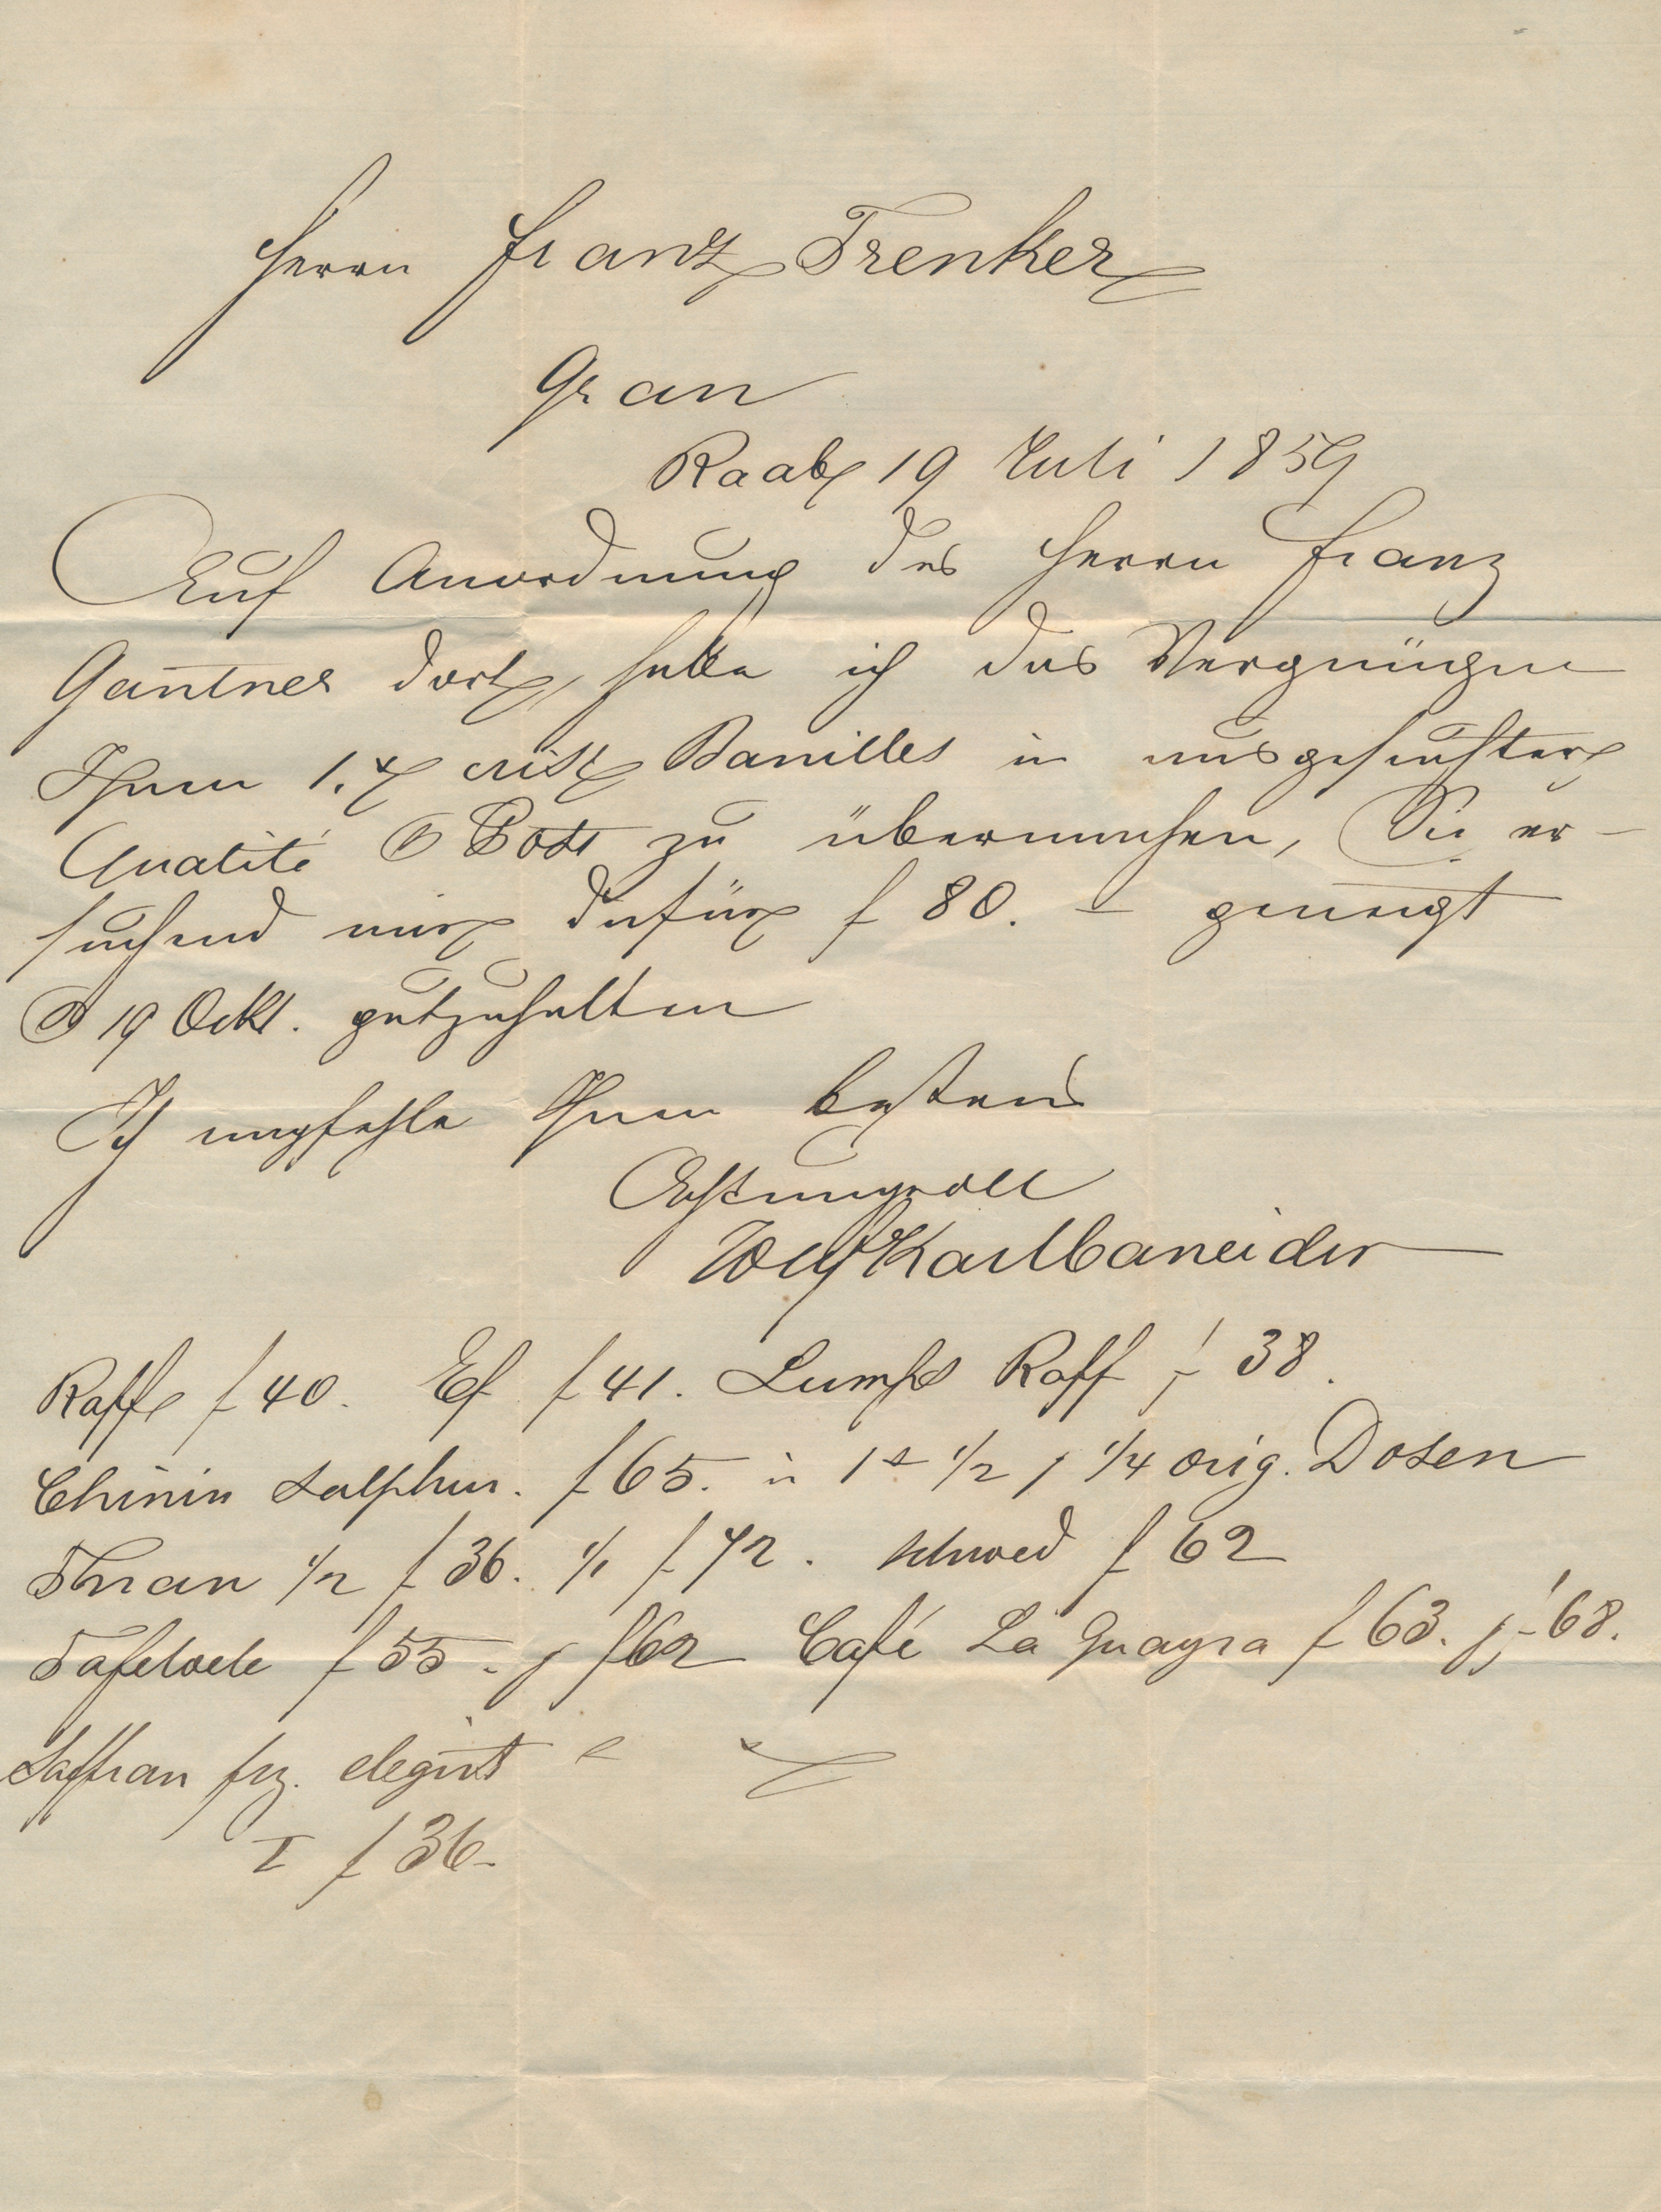 Herrn Franz Trenker
Gran
Raab 19 Juli 1859
Auf Anordnung des Herrn Franz
Gantner dort, habe ich das Vergnügen
Ihnen 1. crist Vanilles in ausgesuchter
Qualité Post zu übermachen, Sie er-
suchend mir dafür f 80. – geneigt
19 Ockt. gutzuhalten
Ich empfehle Ihnen bestens
Achtungsvoll
Raff f 40. Ef f 41. Lumps Raff f 38.
Chinin sulphur. f 65. in 1/2 1/4 orig. Dosen
Thran 1/2 f 36. 1/1 f 42. schwed f 62
Tafeloele f 55 f 62 Café La Guayra f 63. 68.
Saffran frz. elegirt
I f 36-